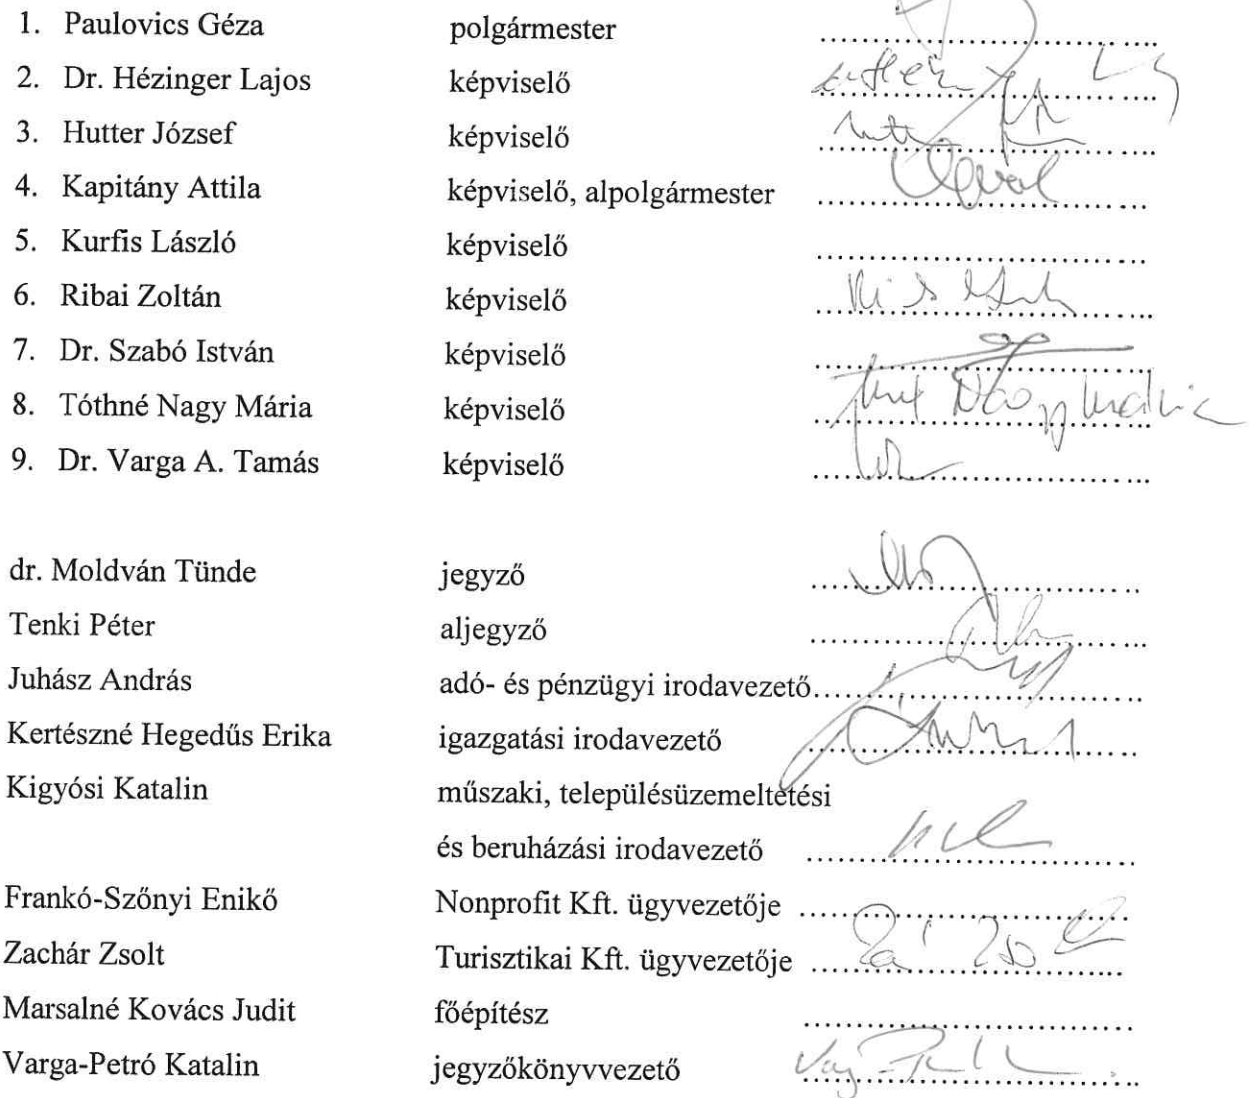 1. Paulovics Géza polgármester
2. Dr. Hézinger Lajos képviselő
3. Hutter József képviselő
4. Kapitány Attila képviselő, alpolgármester
5. Kurfis László képviselő
6. Ribai Zoltán képviselő
7. Dr. Szabó István képviselő
8. Tóthné Nagy Mária képviselő Nagy Mária
9. Dr. Varga A. Tamás képviselő
dr. Moldván Tünde jegyző
Tenki Péter aljegyző
Juhász András adó- és pénzügyi irodavezető
Kertészné Hegedűs Erika igazgatási irodavezető
Kigyósi Katalin műszaki, településüzemeltetési
és beruházási irodavezető
Frankó-Szőnyi Enikő Nonprofit Kft. ügyvezetője
Zachár Zsolt Turisztikai Kft. ügyvezetője
Marsalné Kovács Judit főépítész
Varga-Petró Katalin jegyzőkönyvvezető